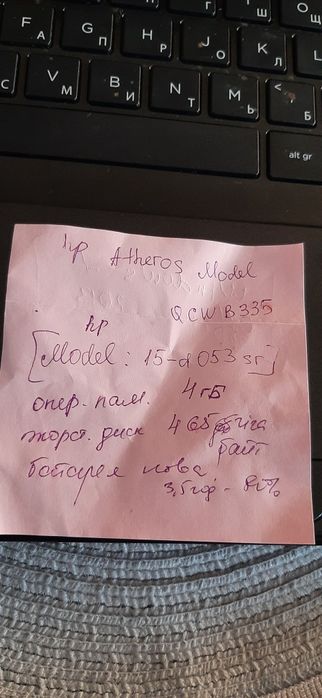 F А
G П
H Р
J О
K Л
L
V М
B И
N Т
M Ь
< Б
alt gr
hp Atheros Model
QCWB335
hp
[Model: 15-d053sr]
опер. пам. 4 гБ
жорст. диск 465 гіга
байт
батарея нова
3,5 год - 80%